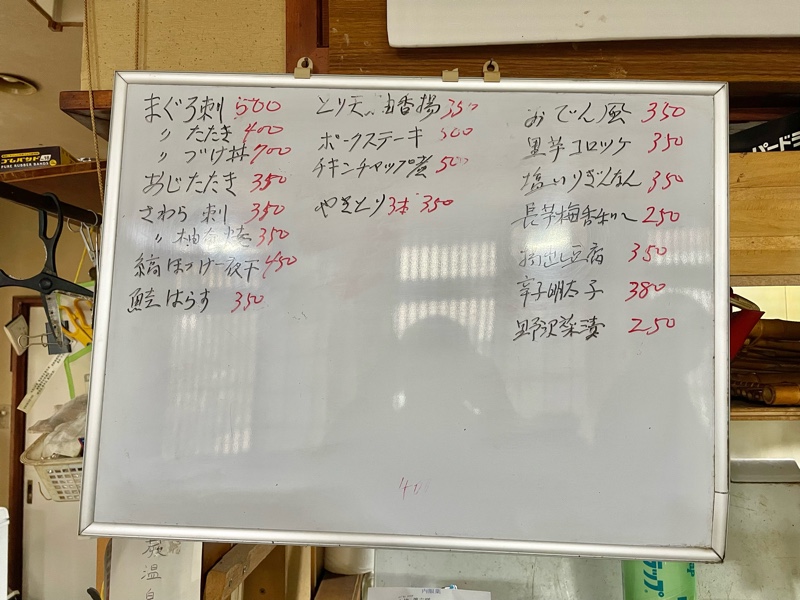 まぐろ刺 500
〃 たたき 400
〃 づけ丼 700
あじたたき 350
さわら 刺 350
〃 柚香焼 350
縞ほっけ一夜干 450
鮭はらす 350
とり天 油香揚 350
ポークステーキ 500
チキンチャップ煮 500
やきとり3本 350
おでん風 350
里芋コロッケ 350
塩いりぎんなん 350
長芋梅香和へ 250
豆腐 350
辛子明太子 380
野沢菜漬 250
40
温泉
内服薬
PURE RUBBER BANDS
パードラ
ラップ